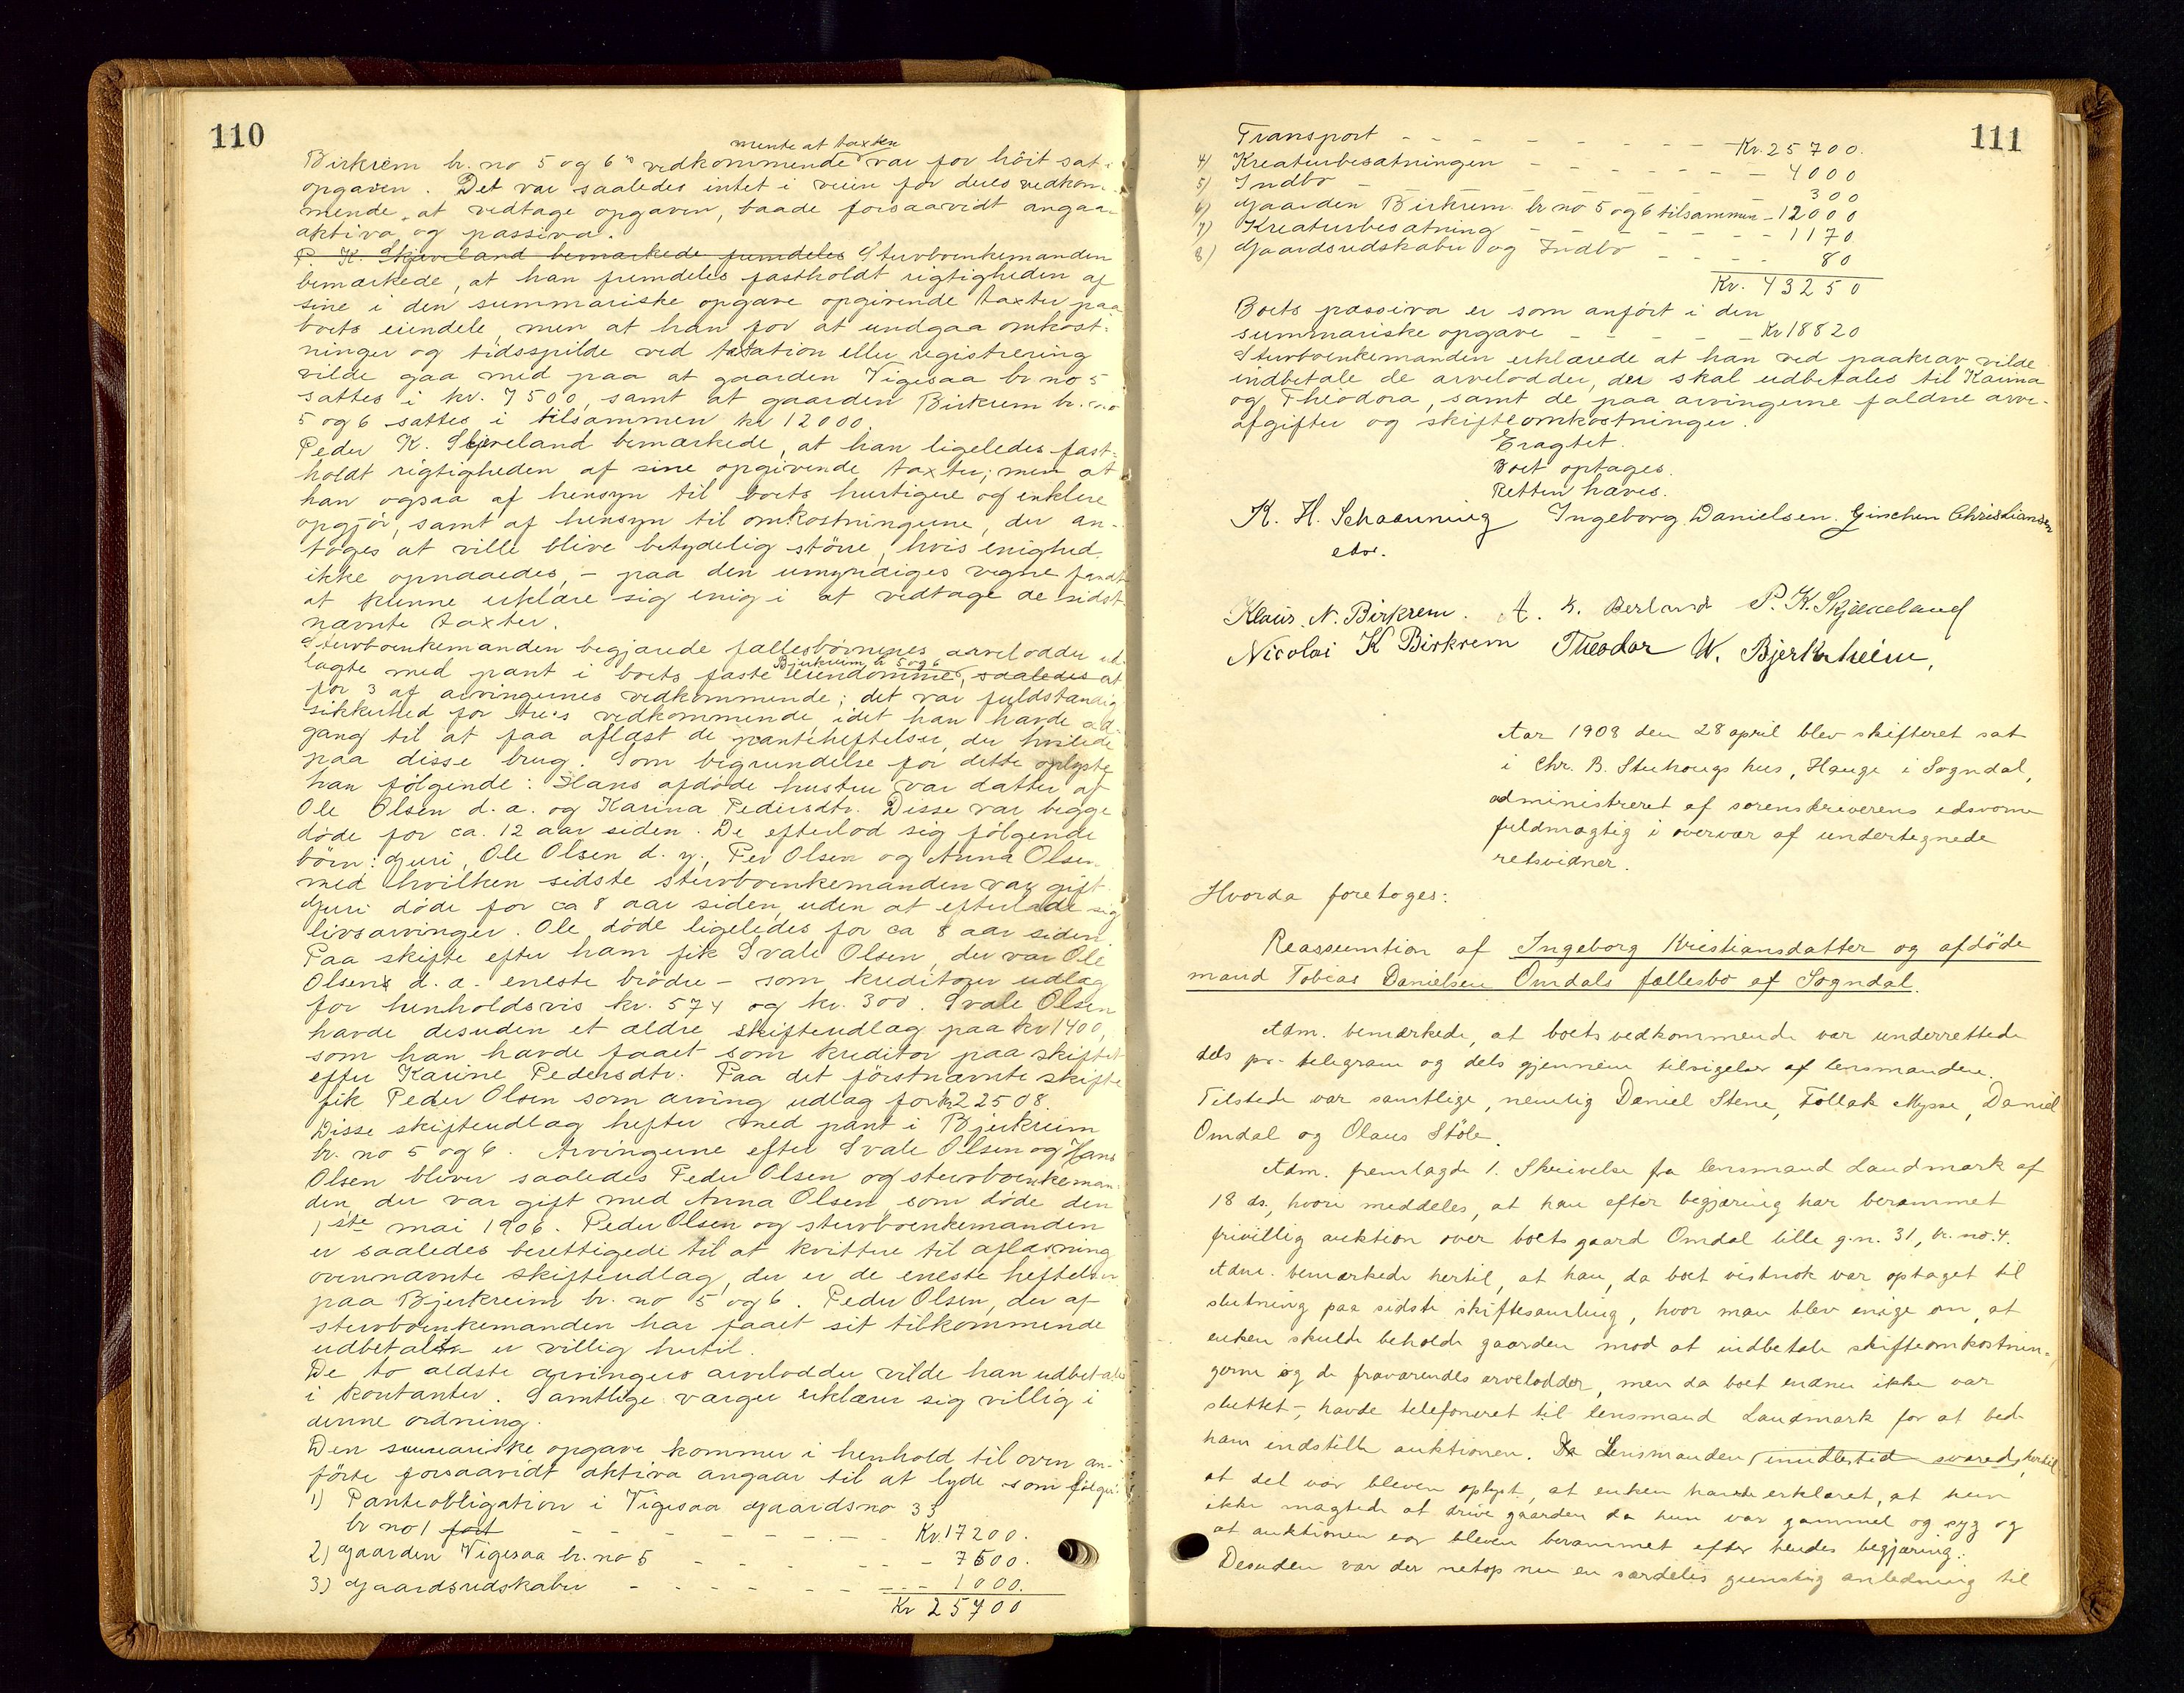 110
mente at taxten
Birkrem br. no 5 og 6's vedkommende var for höit sat i
opgaven. Det var saaledes intet i veien for deres vedkom-
mende at vedtage opgaven, baade forsaavidt angaar
aktiva og passiva.
P. K. Skjæveland bemærkede fremdeles Stervboenkemanden
bemærkede, at han fremdeles fastholdt rigtigheden af
sine i den summariske opgave opgivende taxter paa
boets eiendele, men at han for at undgaa omkost-
ninger og tidsspilde ved taxation eller registrering
vilde gaa med paa at gaarden Vigesaa br no 5
sattes i kr. 7500, samt at gaarden Birkrem br. no
5 og 6 sattes i tilsammen kr 12000.
Peder K. Skjæveland bemærkede, at han ligeledes fast-
holdt rigtigheden af sine opgivende taxter; men at
han ogsaa af hensyn til boets hurtigere og enklere
opgjör, samt af hensyn til omkostningerne, der an-
toges at ville blive betydelig större, hvis enighed
ikke opnaaedes, – paa den umyndiges vegne fandt
at kunne erklære sig enig i at vedtage de sidst
nævnte taxter.
Stervboenkemanden begjærede fællesbörnenes arvelodder ud-
Bjerkreim br 5 og 6
lagte med pant i boets faste eiendomme, saaledes at
for 3 af arvingernes vedkommende; det var fuldstændig
sikkerhed for tre's vedkommende, idet han havde ad-
gang til at faa aflæst de pantheftelser, der hvilede
paa disse brug. Som begrundelse for dette oplyste
han fölgende: Hans afdöde hustru var datter af
Ole Olsen d. æ. og Karina Pedersdtr. Disse var begge
döde for ca. 12 aar siden. De efterlod sig fölgende
börn: Guri, Ole Olsen d. y., Per Olsen og Anna Olsen
med hvilken sidste stervboenkemanden var gift.
Guri döde for ca 8 aar siden, uden at efterlade sig
livsarvinger. Ole döde ligeledes for ca 8 aar siden.
Paa skifte efter ham fik Svale Olsen, der var Ole
Olsens d. æ. eneste brödre – som kreditorer udlag
for henholdsvis kr. 574 og kr. 300. Svale Olsen
havde desuden et ældre skifteudlæg paa kr 1400,
som han havde faaet som kreditor paa skiftet
efter Karine Pedersdtr. Paa det förstnævnte skifte
fik Peder Olsen som arving udlag for kr 2508.
Disse skifteudlag hefter med pant i Bjerkreim
br. no 5 og 6. Arvingerne efter Svale Olsen og Hans
Olsen bliver saaledes Peder Olsen og stervboenkeman-
den, der var gift med Anna Olsen, som döde den
1ste mai 1906. Peder Olsen og stervboenkemanden
er saaledes berettigede til at kvittere til aflæsning
ovennævnte skifteudlag, der er de eneste heftelser
paa Bjerkreim br. no 5 og 6. Peder Olsen, der af
stervboenkemanden har faaet sit tilkommende
udbetalt er villig hertil.
De to ældste arvingers arvelodder vilde han udbetale
i kontanter. Samtlige værger erklærer sig villig i
denne ordning.
Den summariske opgave kommer i henhold til oven an-
förte forsaavidt aktiva angaar til at lyde som fölger:
1) Panteobligation i Vigesaa gaardsno 33
br no 1 fort - - - - - - - Kr. 17200.
2) Gaarden Vigesaa br. no 5 - - - - - 7500.
3) Gaardsredskaber - - - - - - - 1000.
Kr 25700
111
Transport - - - - - - - - Kr. 25700.
4) Kreaturbesætningen - - - - - - 4000
5) Indbo - - - - - - - - 300
6) Gaarden Birkrem br no 5 og 6 tilsammen - 12000
7) Kreaturbesætning - - - - - - 1170
8) Gaardsredskaber og Indbo - - - - 80
Kr. 43250
Boets passiva er som anfört i den
summariske opgave - - - - - Kr 18820
Stervboenkemanden erklærede at han ved paakrav vilde
indbetale de arvelodder, der skal udbetales til Karina
og Theodora, samt de paa arvingerne faldne arve-
afgifter og skifteomkostninger.
Eragtet.
Boet optages.
Retten hæves.
K. H. Schaanning Ingeborg Danielsen. Ginchen Christiansen
edsv.
Klaus. N. Birkrem. A. K. Berland P. K. Skjæveland
Nicolai K Birkrem Theodor W. Bjerkrheim,
Aar 1908 den 28 april blev skifteret sat
i Chr. B. Steehougs hus, Hauge i Sogndal,
administreret af sorenskriverens edsvorne
fuldmægtig i overvær af undertegnede
retsvidner.
Hvorda foretoges:
Reassumtion af Ingeborg Kristiansdatter og afdöde
mand Tobias Danielsen Omdals fællesbo af Sogndal.
Adm. bemærkede, at boets vedkommende var underrettede
dels pr. telegram og dels gjennem tilsigelse af lensmanden.
Tilstede var samtlige, nemlig Daniel Stene, Tollak Mysse, Daniel
Omdal og Olaus Stöle.
Adm. fremlagde 1. Skrivelse fra lensmand Landmark af
18 ds., hvori meddeles, at han efter begjæring har berammet
frivillig auktion over boets gaard Omdal lille g.n. 31, br. no. 4.
Adm. bemærkede hertil, at han, da boet vistnok var optaget til
slutning paa sidste skiftesamling, hvor man blev enige om, at
enken skulde beholde gaarden mod at indbetale skifteomkostnin-
gerne og de fraværendes arvelodder, men da boet endnu ikke var
sluttet, – havde telefoneret til lensmand Landmark for at bed-
ham indstille auktionen. Da Lensmanden imidlertid svarede hertil
at det var bleven oplyst, at enken havde erklæret, at hun
ikke magtede at drive gaarden da hun var gammel og syg og
at auktionen var bleven berammet efter hendes begjæring.
Desuden var der netop nu en særdeles gunstig anledning til